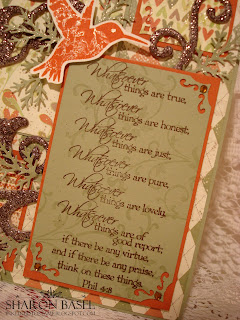 Whatsoever
things are true,
Whatsoever
things are honest,
Whatsoever
things are just,
Whatsoever
things are pure,
Whatsoever
things are lovely,
Whatsoever
things are of
good report:
if there be any virtue,
and if there be praise,
think on these things.
Phil 4:8
SHARON BASEL